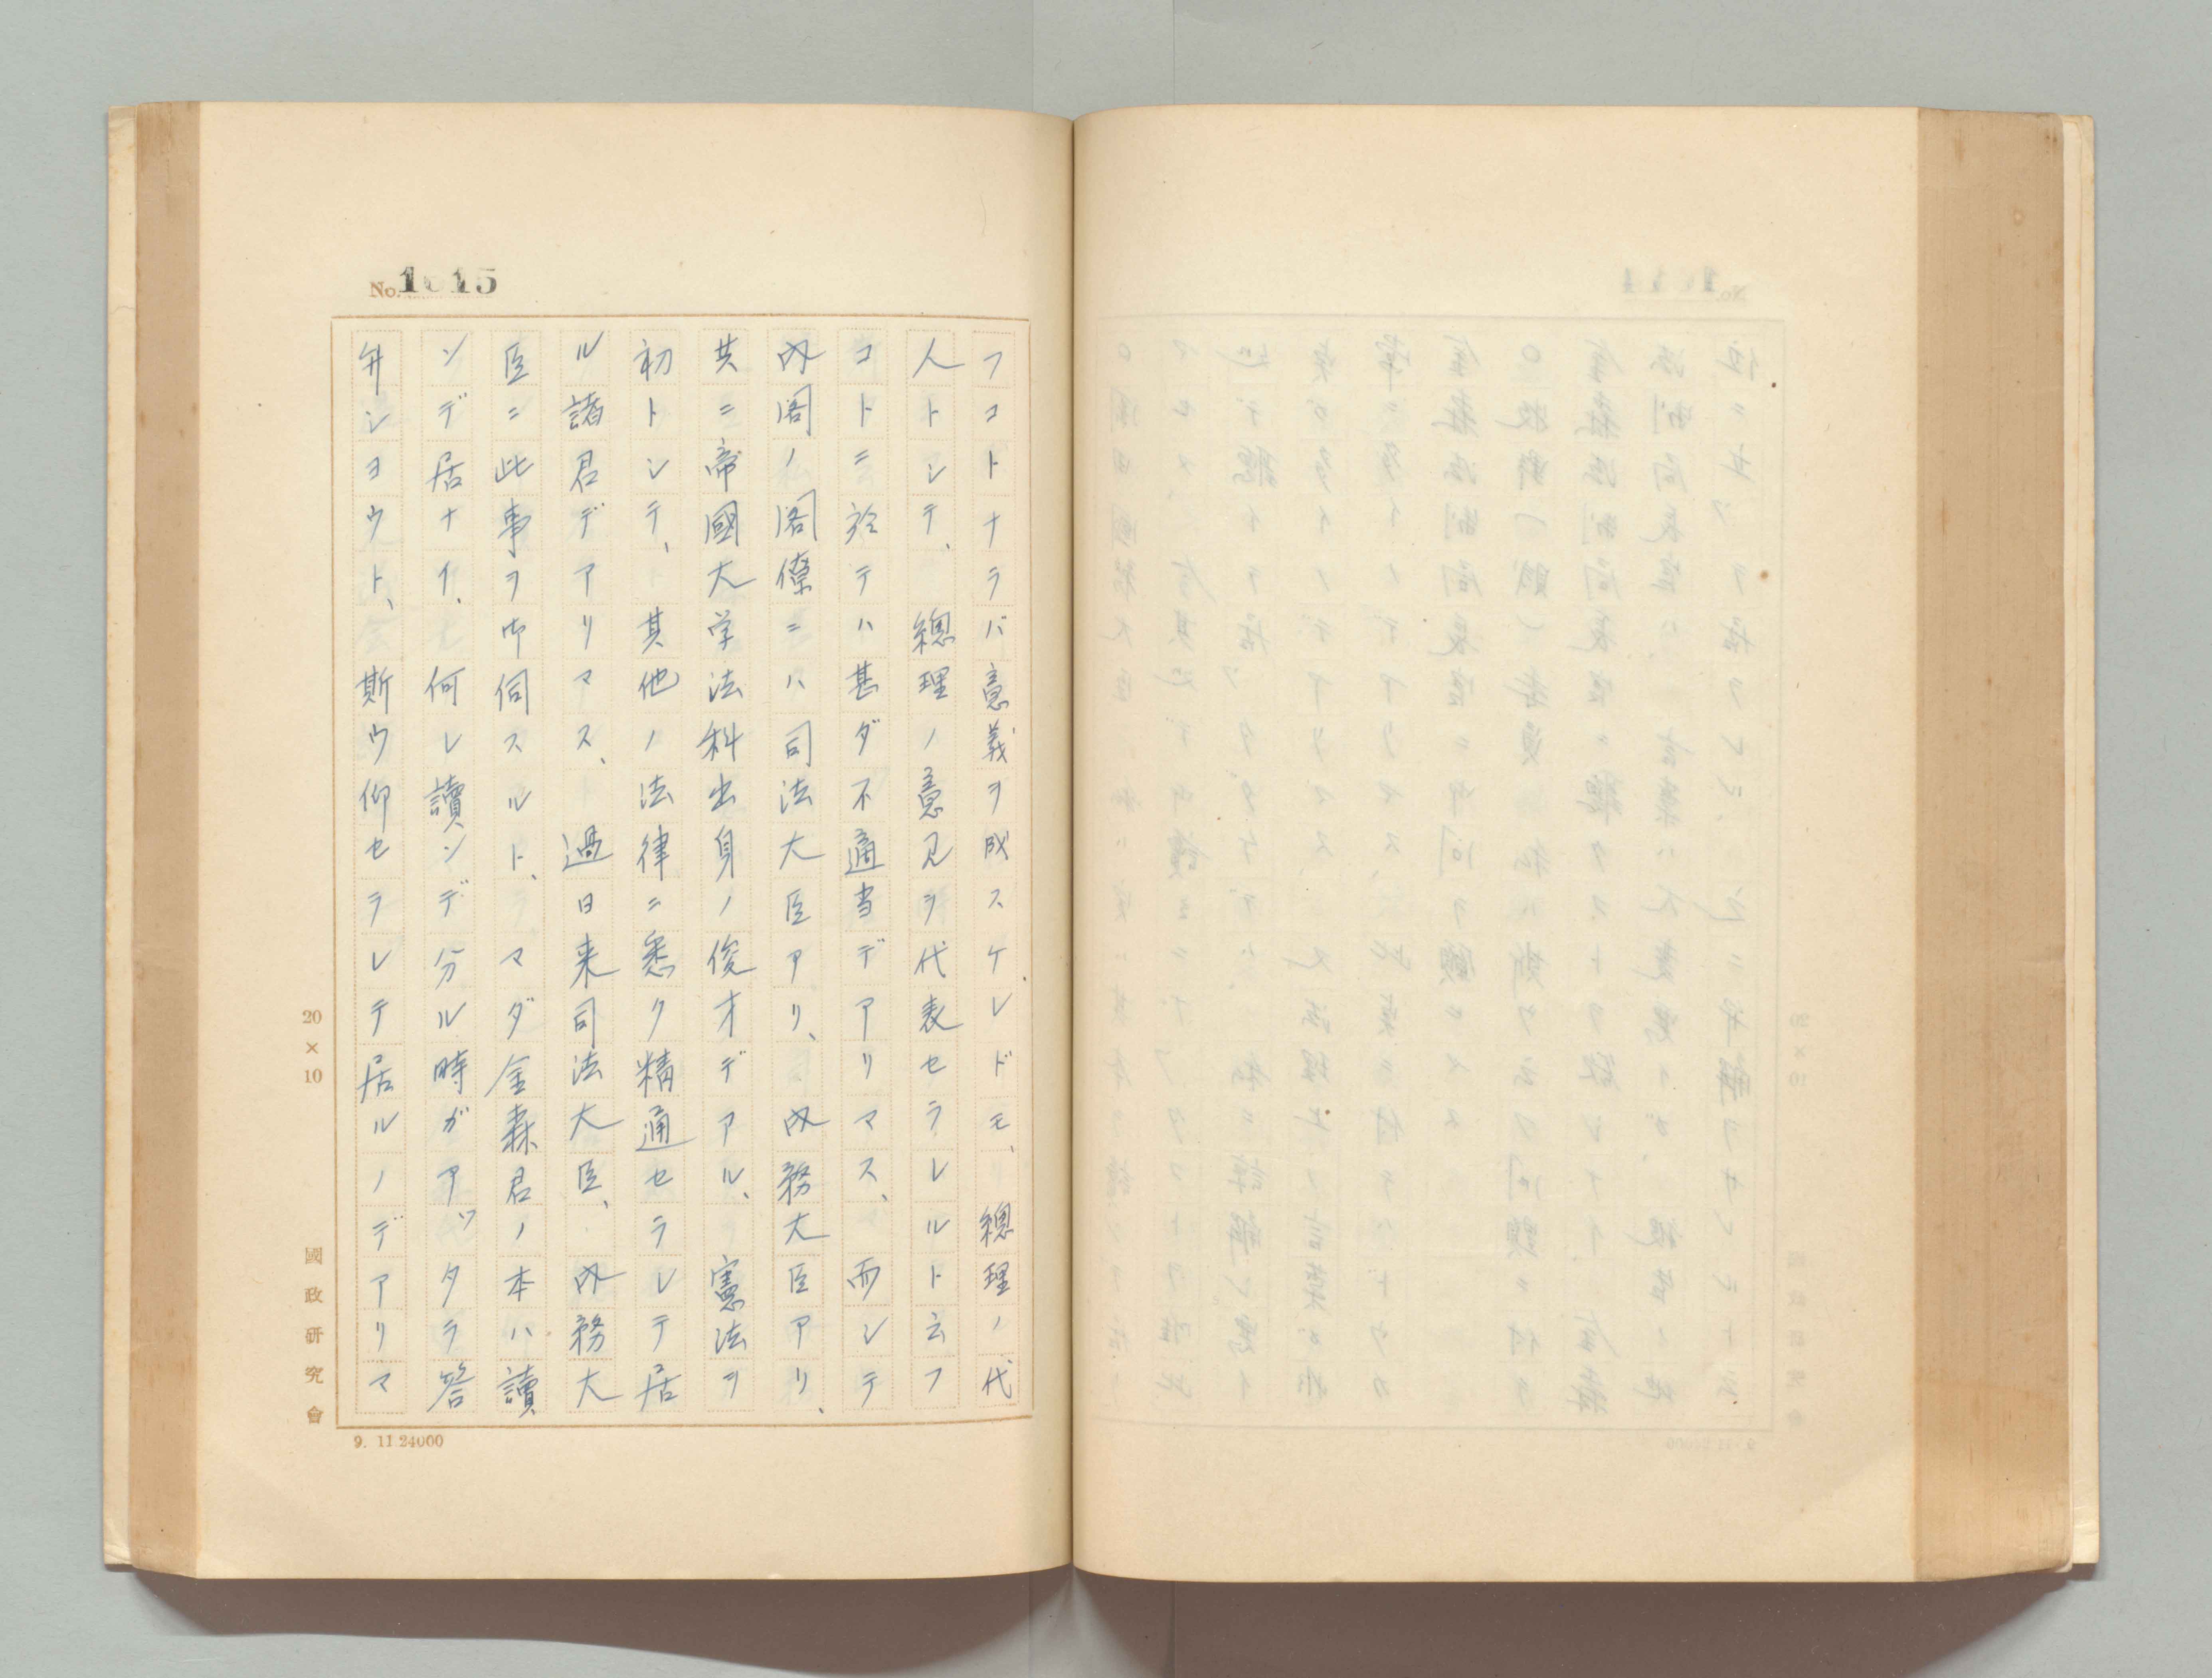 No. 1015
フコトナラバ意義ヲ成スケレドモ、總理ノ代
人トシテ、總理ノ意見ヲ代表セラレルト云フ
コトニ於テハ甚ダ不適当デアリマス、而シテ
内閣ノ閣僚ニハ司法大臣アリ、内務大臣アリ、
共ニ帝國大学法科出身ノ俊才デアル、憲法ヲ
初トシテ、其他ノ法律ニ悉ク精通セラレテ居
ル諸君デアリマス、過日来司法大臣、内務大
臣ニ此事ヲ御伺スルト、マダ金森君ノ本ハ讀
ンデ居ナイ、何レ讀ンデ分ル時ガアツタラ答
弁シヨウト、斯ウ仰セラレテ居ルノデアリマ
20×10
國政研究會
9. 11.24000